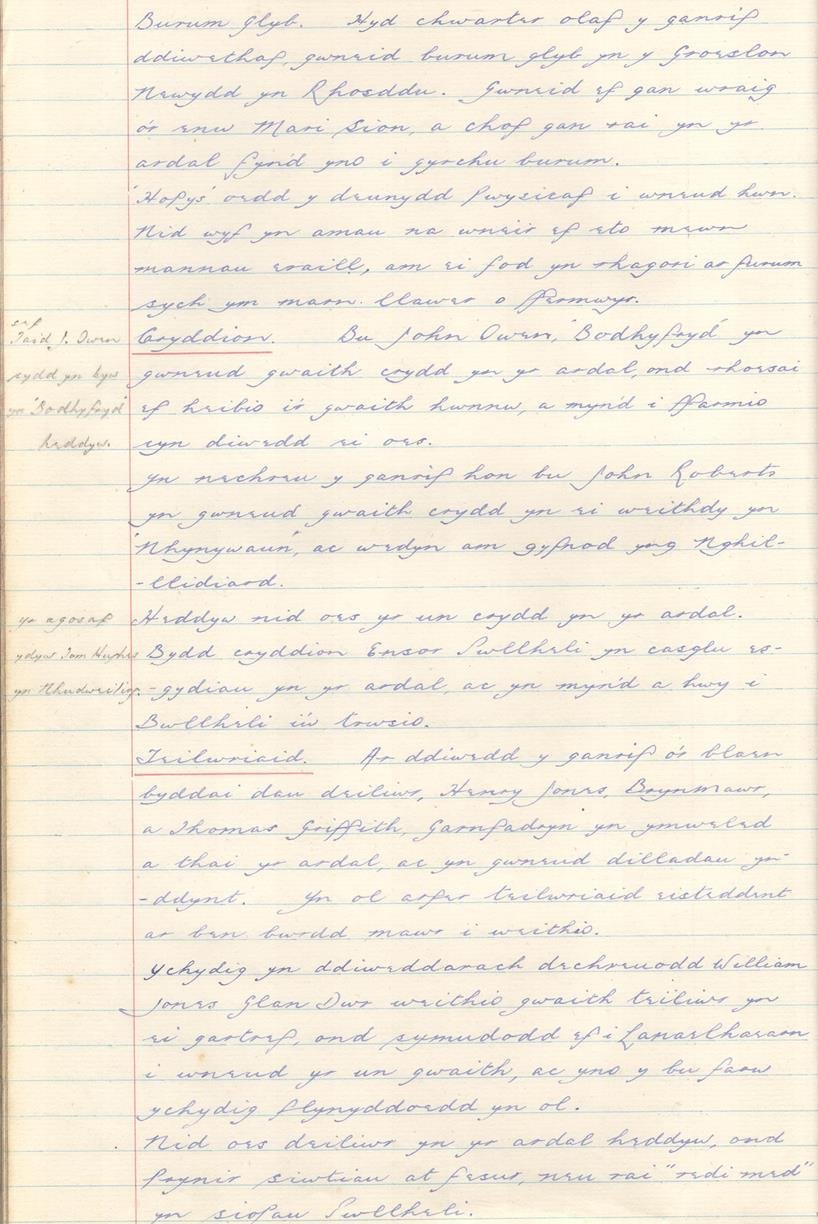 Burum Glyb. Hyd chwarter olaf y ganrif
ddiwethaf, gwneid burum glyb yn y Groeslon
Newydd yn Rhosddu. Gwneid ef gan wraig
o'r enw Mari Sion, a chof gan rai yn yr
ardal fyn'd yno i gyrchu burum.
'Hopys' oedd y deunydd pwysicaf i wneud hwn.
Nid wyf yn amau na wneir ef eto mewn
mannau eraill, am ei fod yn rhagori ar furum
sych ym marn llawer o ffermwyr.
Cryddion. Bu John Owen, 'Bodhyfryd' yn
gwneud gwaith crydd yn yr ardal, ond rhoesai
ef heibio i'r gwaith hwnnw, a myn'd i ffarmio
cyn diwedd ei oes.
sef
Taid J. Owen
sydd yn byw
yn 'Bodhyfryd'
heddyw.
Yn nechreu y ganrif hon bu John Roberts
yn gwneud gwaith crydd yn ei weithdy yn
'Nhynywaun', ac wedyn am gyfnod yng Nghil-
-llidiard.
Heddyw nid oes yr un crydd yn yr ardal.
yr agosaf
ydyw Tom Hughes
yn Rhydweilig.
Bydd cryddion Ensor Pwllheli yn casglu es-
-gydiau yn yr ardal, ac yn myn'd a hwy i
Bwllheli i'w trwsio.
Teilwriaid. Ar ddiwedd y ganrif o'r blaen
byddai dau deiliwr, Henry Jones, Brynmawr,
a Thomas Griffith, Garnfadryn yn ymweled
a thai yr ardal, ac yn gwneud dilladau yn-
-ddynt. Yn ol arfer teilwriaid eisteddent
ar ben bwrdd mawr i weithio.
Ychydig yn ddiweddarach dechreuodd William
Jones Glan Dwr weithio gwaith teiliwr yn
ei gartref, ond symudodd ef i Lanaelhaearn
i wneud yr un gwaith, ac yno y bu farw
ychydig flynyddoedd yn ol.
Nid oes deiliwr yn yr ardal heddyw, ond
prynir siwtiau at fesur, neu rai "redi med"
yn siopau Pwllheli.